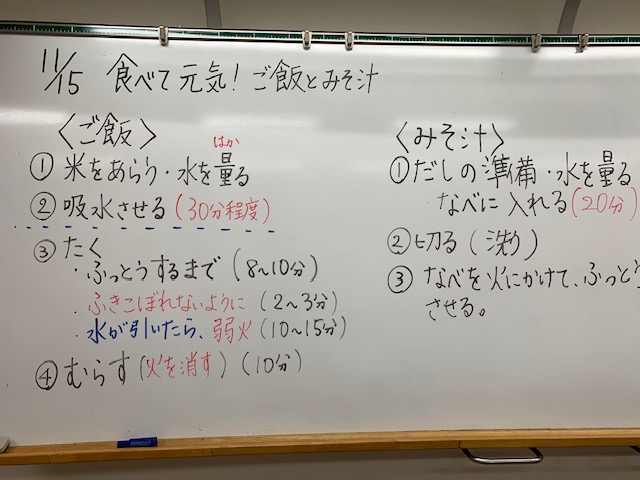 11/15 食べて元気！ご飯とみそ汁
〈ご飯〉
はか
① 米をあらう・水を量る
② 吸水させる(30分程度)
③ たく
・ふっとうするまで(8~10分)
・ふきこぼれないように(2~3分)
・水が引いたら、弱火(10~15分)
④ むらす(火を消す)(10分)
〈みそ汁〉
① だしの準備・水を量る
・なべに入れる(20分)
② 切る(洗う)
③ なべを火にかけて、ふっとう
させる。